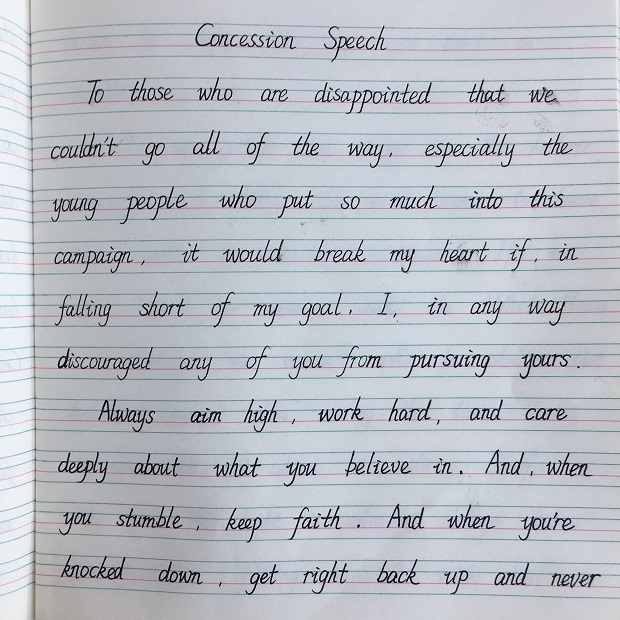 Concession Speech
To those who are disappointed that we
couldn't go all of the way, especially the
young people who put so much into this
campaign, it would break my heart if, in
falling short of my goal, I, in any way
discouraged any of you from pursuing yours.
Always aim high, work hard, and care
deeply about what you believe in. And, when
you stumble, keep faith. And when you're
knocked down, get right back up and never